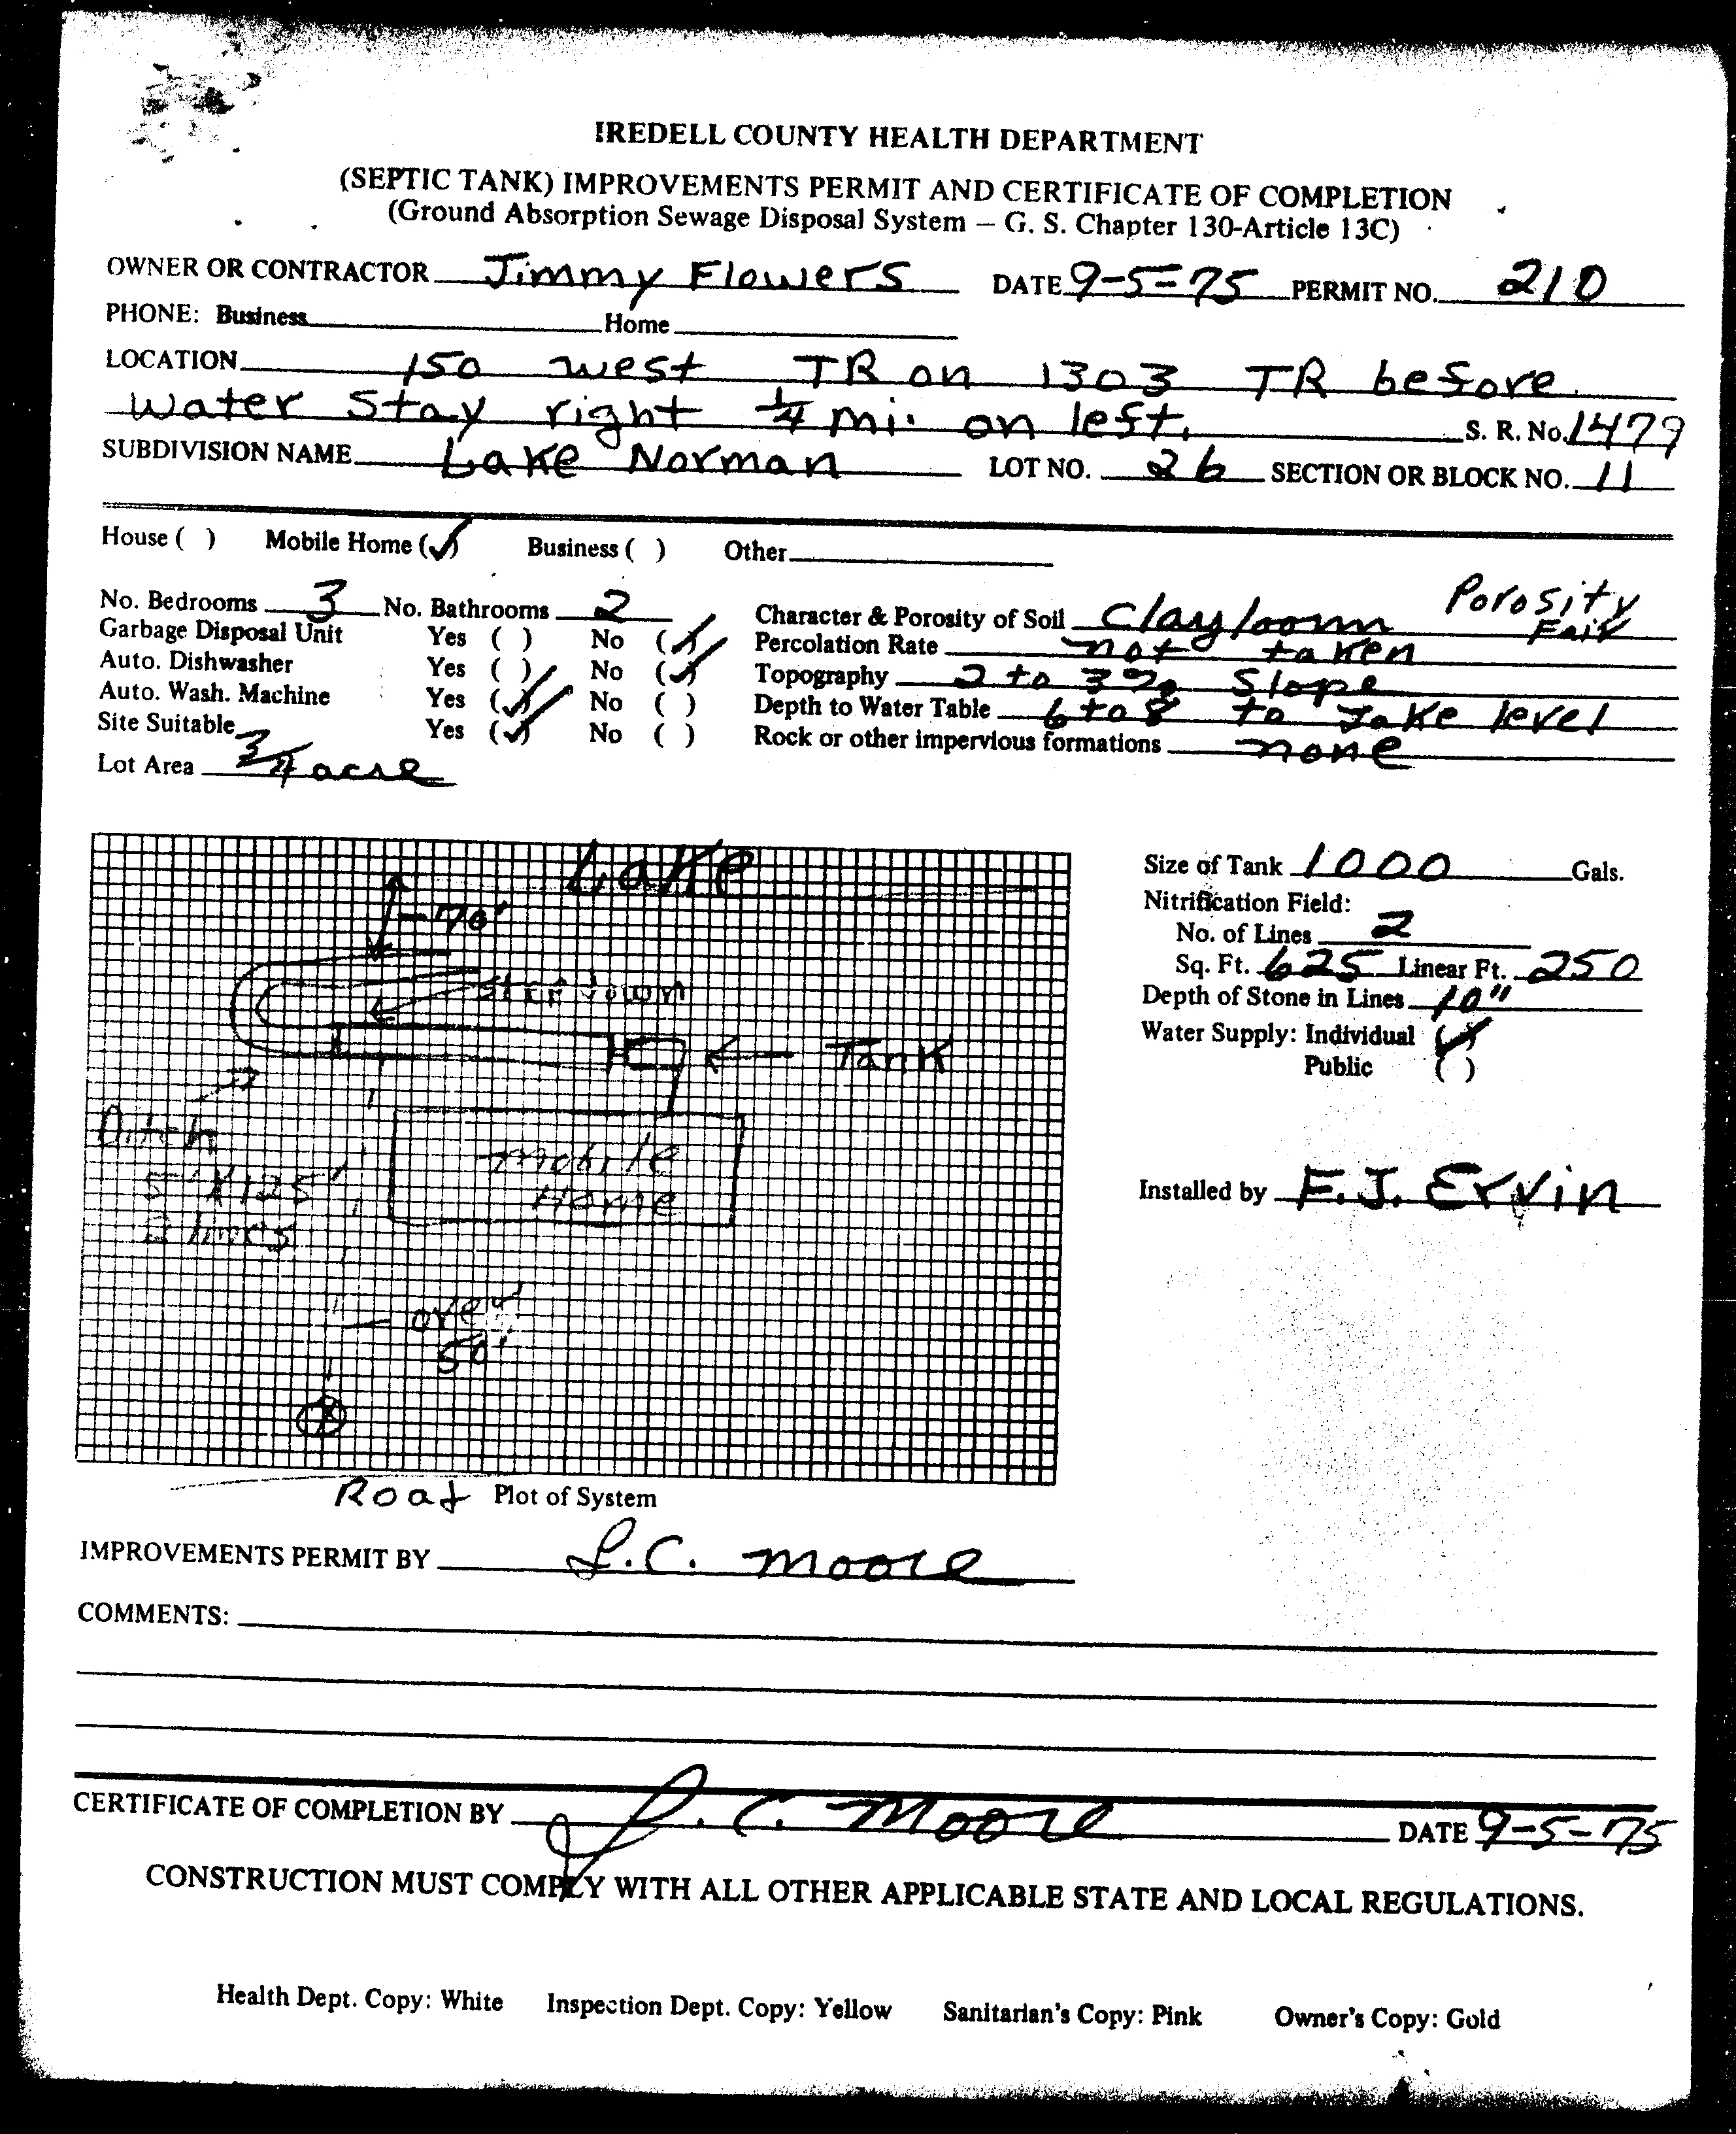 IREDELL COUNTY HEALTH DEPARTMENT
(SEPTIC TANK) IMPROVEMENTS PERMIT AND CERTIFICATE OF COMPLETION
(Ground Absorption Sewage Disposal System – G. S. Chapter 130-Article 13C)
OWNER OR CONTRACTOR Jimmy Flowers DATE 9-5-75 PERMIT NO. 210
PHONE: Business Home
LOCATION 150 west TR on 1303 TR before
water stay right 1/4 mi. on left. S. R. No. 1479
SUBDIVISION NAME Lake Norman LOT NO. 26 SECTION OR BLOCK NO. 11
House ( ) Mobile Home (✓) Business ( ) Other
No. Bedrooms 3 No. Bathrooms 2
Garbage Disposal Unit Yes ( ) No (✓)
Auto. Dishwasher Yes ( ) No (✓)
Auto. Wash. Machine Yes (✓) No ( )
Site Suitable Yes (✓) No ( )
Lot Area 3/4 acre
Character & Porosity of Soil Clay loam Porosity Fair
Percolation Rate not taken
Topography 2 to 3% Slope
Depth to Water Table 6 to 8 to Lake level
Rock or other impervious formations none
Lake
70'
Step down
Tank
Ditch
5' X 125'
2 lines
mobile
Home
over
50'
Road Plot of System
Size of Tank 1000 Gals.
Nitrification Field:
No. of Lines 2
Sq. Ft. 625 Linear Ft. 250
Depth of Stone in Lines 10"
Water Supply: Individual (✓)
Public ( )
Installed by F.J. Ervin
IMPROVEMENTS PERMIT BY J.C. Moore
COMMENTS:
CERTIFICATE OF COMPLETION BY J.C. Moore DATE 9-5-75
CONSTRUCTION MUST COMPLY WITH ALL OTHER APPLICABLE STATE AND LOCAL REGULATIONS.
Health Dept. Copy: White Inspection Dept. Copy: Yellow Sanitarian's Copy: Pink Owner's Copy: Gold